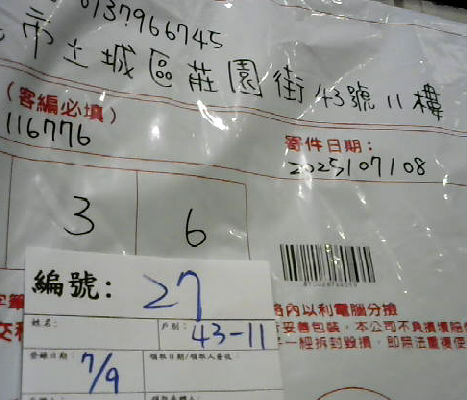 0137966745
市土城區莊園街43號11樓
(寄編必填)
116776
寄件日期:
2025/07/08
3 6
編號: 27
姓名:
戶別: 43-11
登錄日期: 7/9
領取日期/領取人簽收
格內以利電腦分撿
妥善包裝,本公司不負損壞賠
一經拆封毀損,即無法重復使